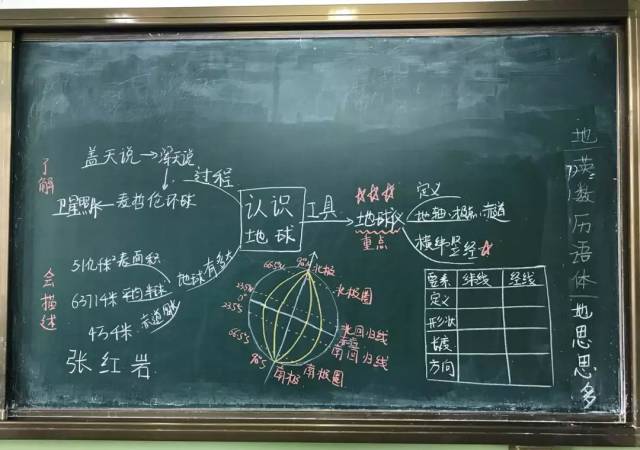 盖天说→浑天说
过程
了解
卫星照片←麦哲伦环球
认识
地球
工具
☆☆☆
地球仪
重点
定义
地轴、极点、赤道
横纬竖经☆
地球有多大
会描述
5.1亿km²表面积
6371千米平均半径
4万千米
张红岩
90°N
北极
66.5°N
北极圈
23.5°N
0°
23.5°S
北回归线
赤道
南回归线
66.5°S
南极圈
90°S
南极
要素 纬线 经线
定义
形状
长度
方向
地
英
数
历
语
体
地
思
思
多